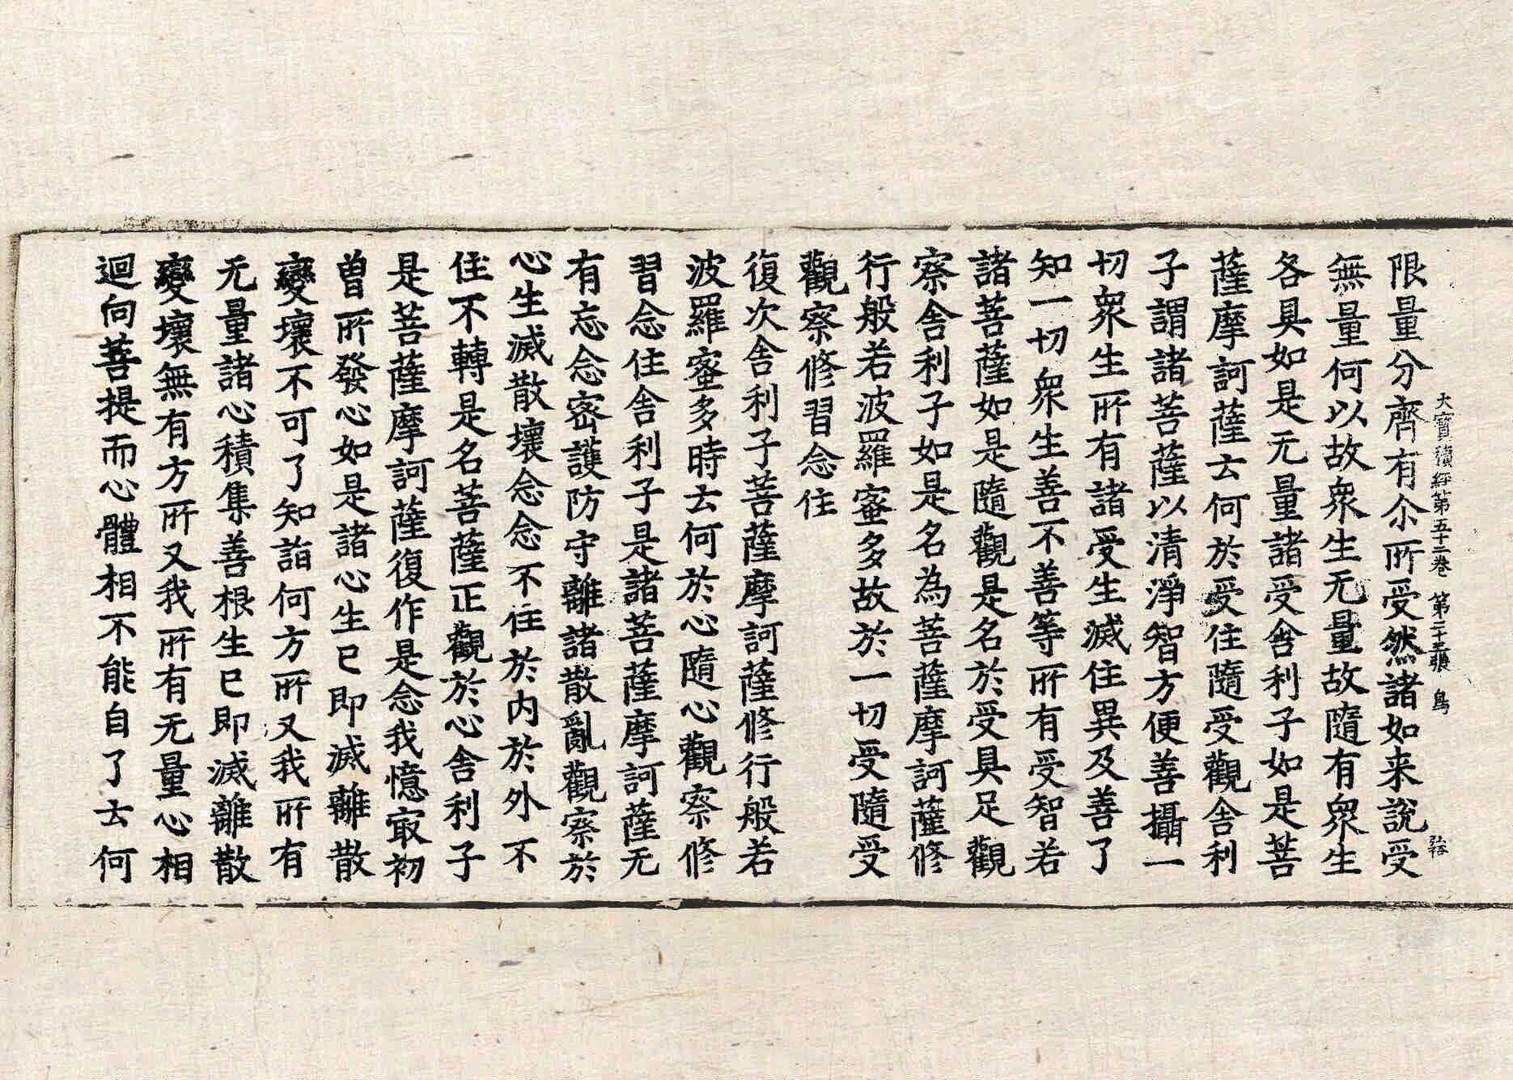 大寶積經第五十二卷　第二十五張　鳥
限量分齊有尒所受然諸如来說受
無量何以故衆生无量故隨有衆生
各具如是无量諸受舍利子如是菩
薩摩訶薩云何於受住隨受觀舍利
子謂諸菩薩以清淨智方便善攝一
切衆生所有諸受生滅住異及善了
知一切衆生善不善等所有受智若
諸菩薩如是隨觀是名於受具足觀
察舍利子如是名為菩薩摩訶薩修
行般若波羅蜜多故於一切受隨受
觀察修習念住
復次舍利子菩薩摩訶薩修行般若
波羅蜜多時云何於心隨心觀察修
習念住舍利子是諸菩薩摩訶薩无
有忘念密護防守離諸散亂觀察於
心生滅散壞念念不住於内於外不
住不轉是名菩薩正觀於心舍利子
是菩薩摩訶薩復作是念我憶㝡初
曾所發心如是諸心生已即滅離散
變壞不可了知詣何方所又我所有
无量諸心積集善根生已即滅離散
變壞無有方所又我所有无量心相
迴向菩提而心體相不能自了云何